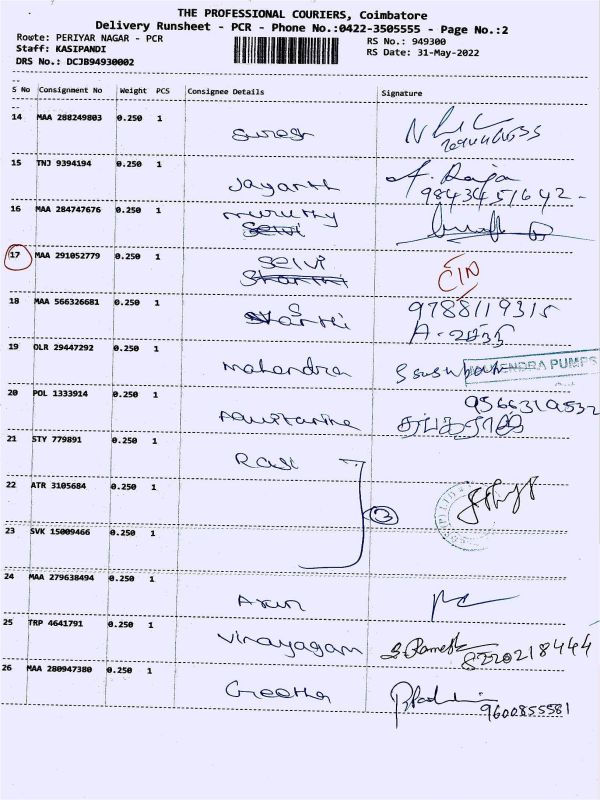 THE PROFESSIONAL COURIERS, Coimbatore
Delivery Runsheet - PCR - Phone No.:0422-3505555 - Page No.:2
Route: PERIYAR NAGAR - PCR
RS No.: 949300
Staff: KASIPANDI
RS Date: 31-May-2022
DRS No.: DCJB94930002
S No Consignment No Weight PCS Consignee Details Signature
14 MAA 288249803 0.250 1 Suresh
15 TNJ 9394194 0.250 1 Jayanth A. Raja
9843451642-
16 MAA 284747676 0.250 1 muruthy
Selvi
17 MAA 291052779 0.250 1 Selvi CIN
Sharthi
18 MAA 566326681 0.250 1 9788119315
A-2835
19 DLR 29447292 0.250 1 Mahendra MAHENDRA PUMPS
20 POL 1333914 0.250 1 9566310532
21 STY 779891 0.250 1 Rasi
22 ATR 3105684 0.250 1 3
23 SVK 15009466 0.250 1
24 MAA 279638494 0.250 1 Arun
25 TRP 4641791 0.250 1 Vinayagam S. Ramesh
8220218444
26 MAA 280947380 0.250 1 Geetha
9600855581